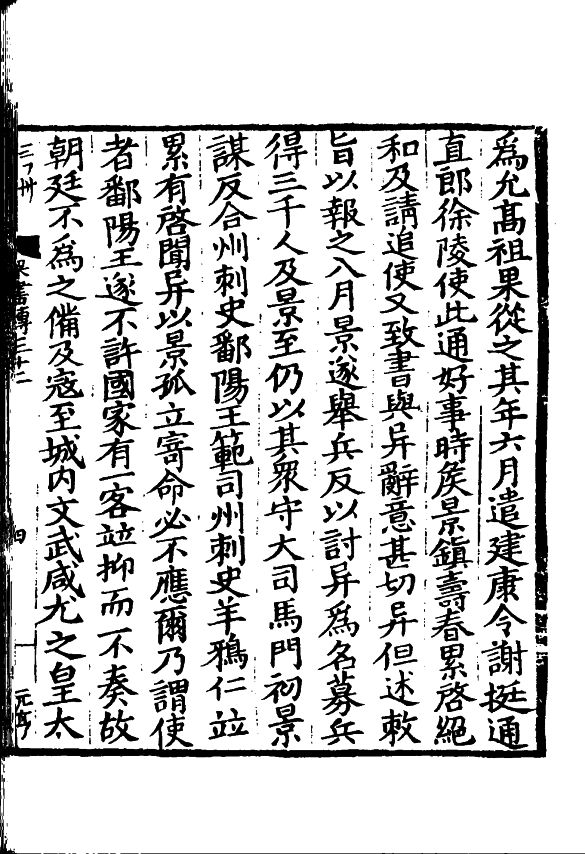 爲允髙祖果從之其年六月遣建康令謝挺通
直郎徐陵使北通好事時侯景鎮壽春累啓絕
和及請追使又致書與异辭意甚切异但述敕
旨以報之八月景遂舉兵反以討异爲名募兵
得三千人及景至仍以其衆守大司馬門初景
謀反合州刺史鄱陽王範司州刺史羊鴉仁竝
累有啓聞异以景孤立寄命必不應爾乃謂使
者鄱陽王遂不許國家有一客竝抑而不奏故
朝廷不爲之備及寇至城内文武咸尤之皇太
梁書傳三十二
四